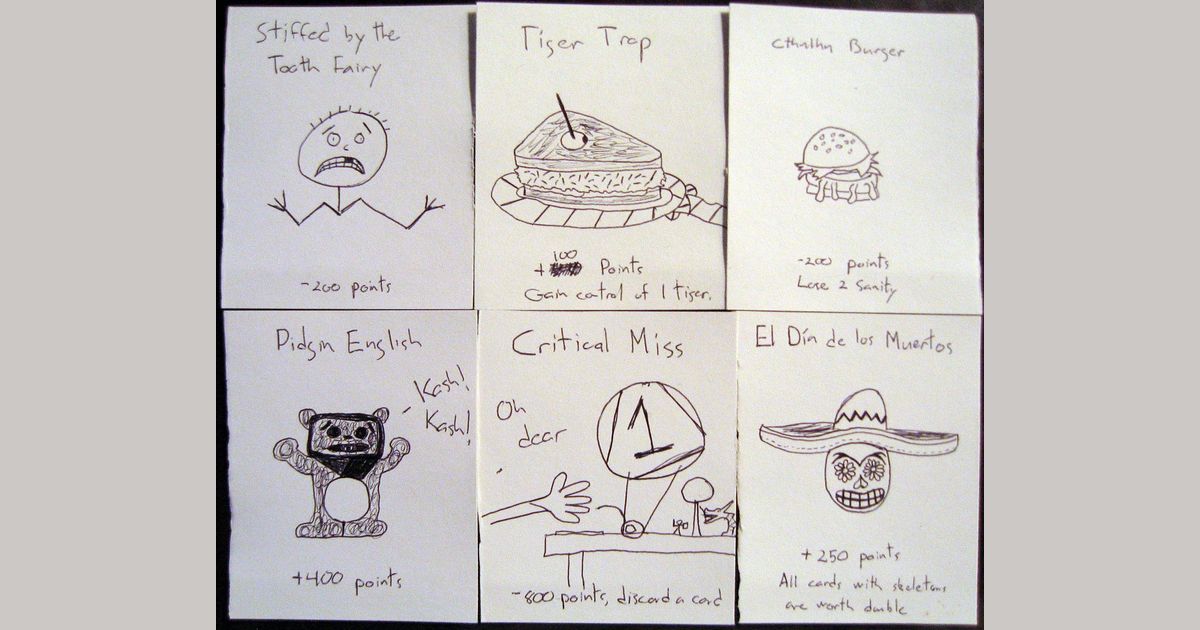 Stiffed by the
Tooth Fairy
-200 points
Tiger Trap
100
+ Points
Gain control of 1 tiger.
Cthulhu Burger
-200 points
Lose 2 Sanity
Pidgin English
Kash!
Kash!
+400 points
Critical Miss
Oh
dear
1
-800 points, discard a card
El Día de los Muertos
+250 points
All cards with skeletons
are worth double